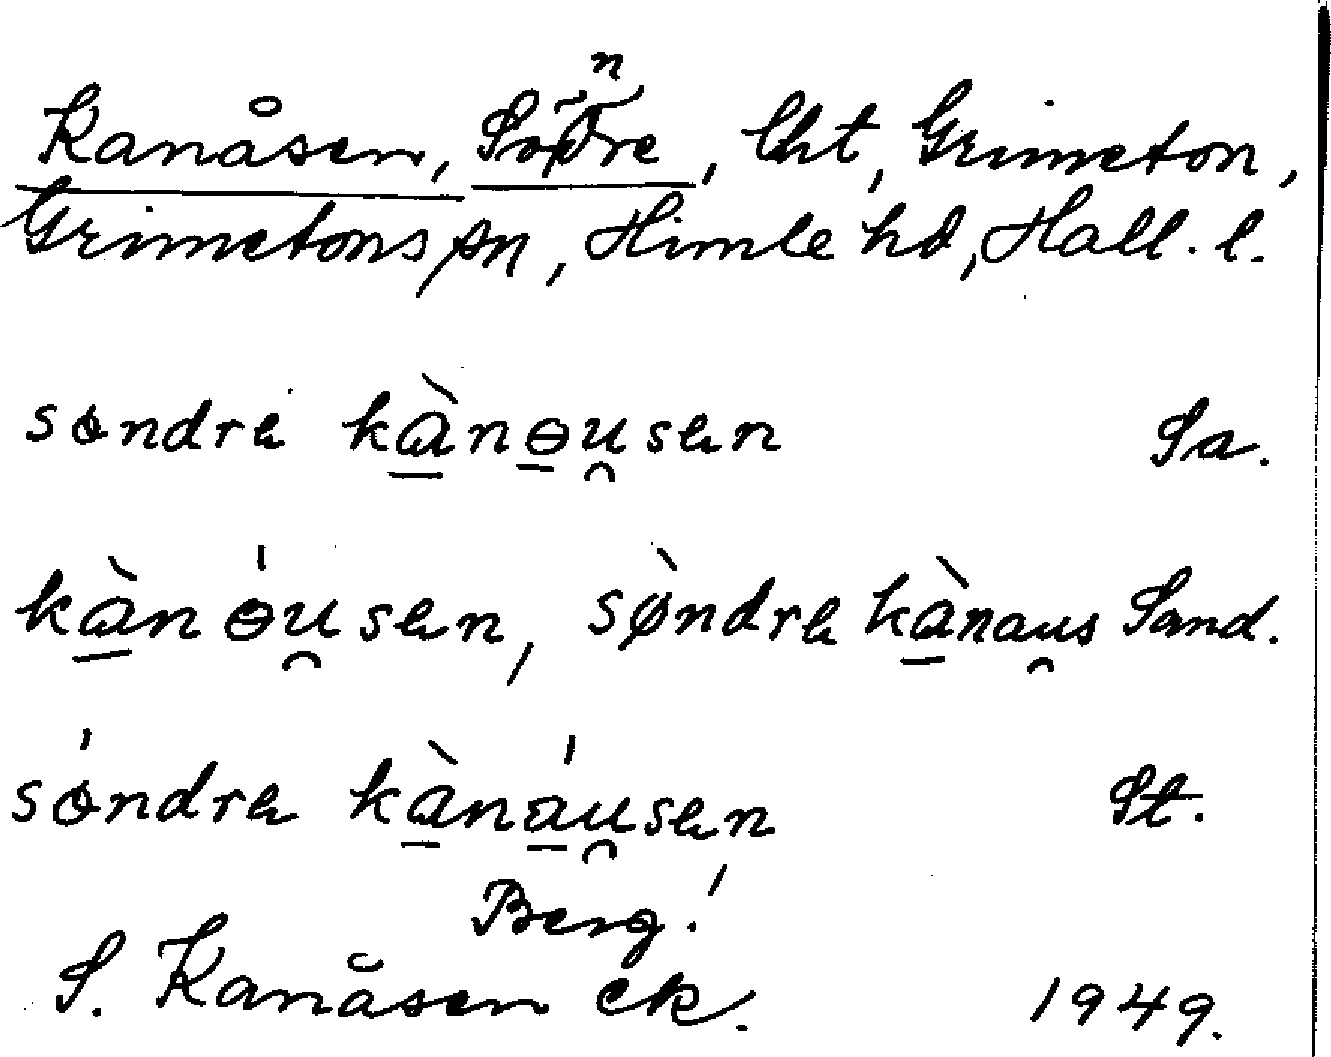 Kanåsen, Södre, lht, Grimeton,
Grimetons sn, Himle hd, Hall. l.
søndrɐ kànɵu̯sɐn Sa.
kànɵ́u̯sɐn, sø̀ndrɐ kànau̯s Sand.
sǿndrɐ kànáu̯sɐn St.
Berg!
S. Kanåsen ek. 1949.